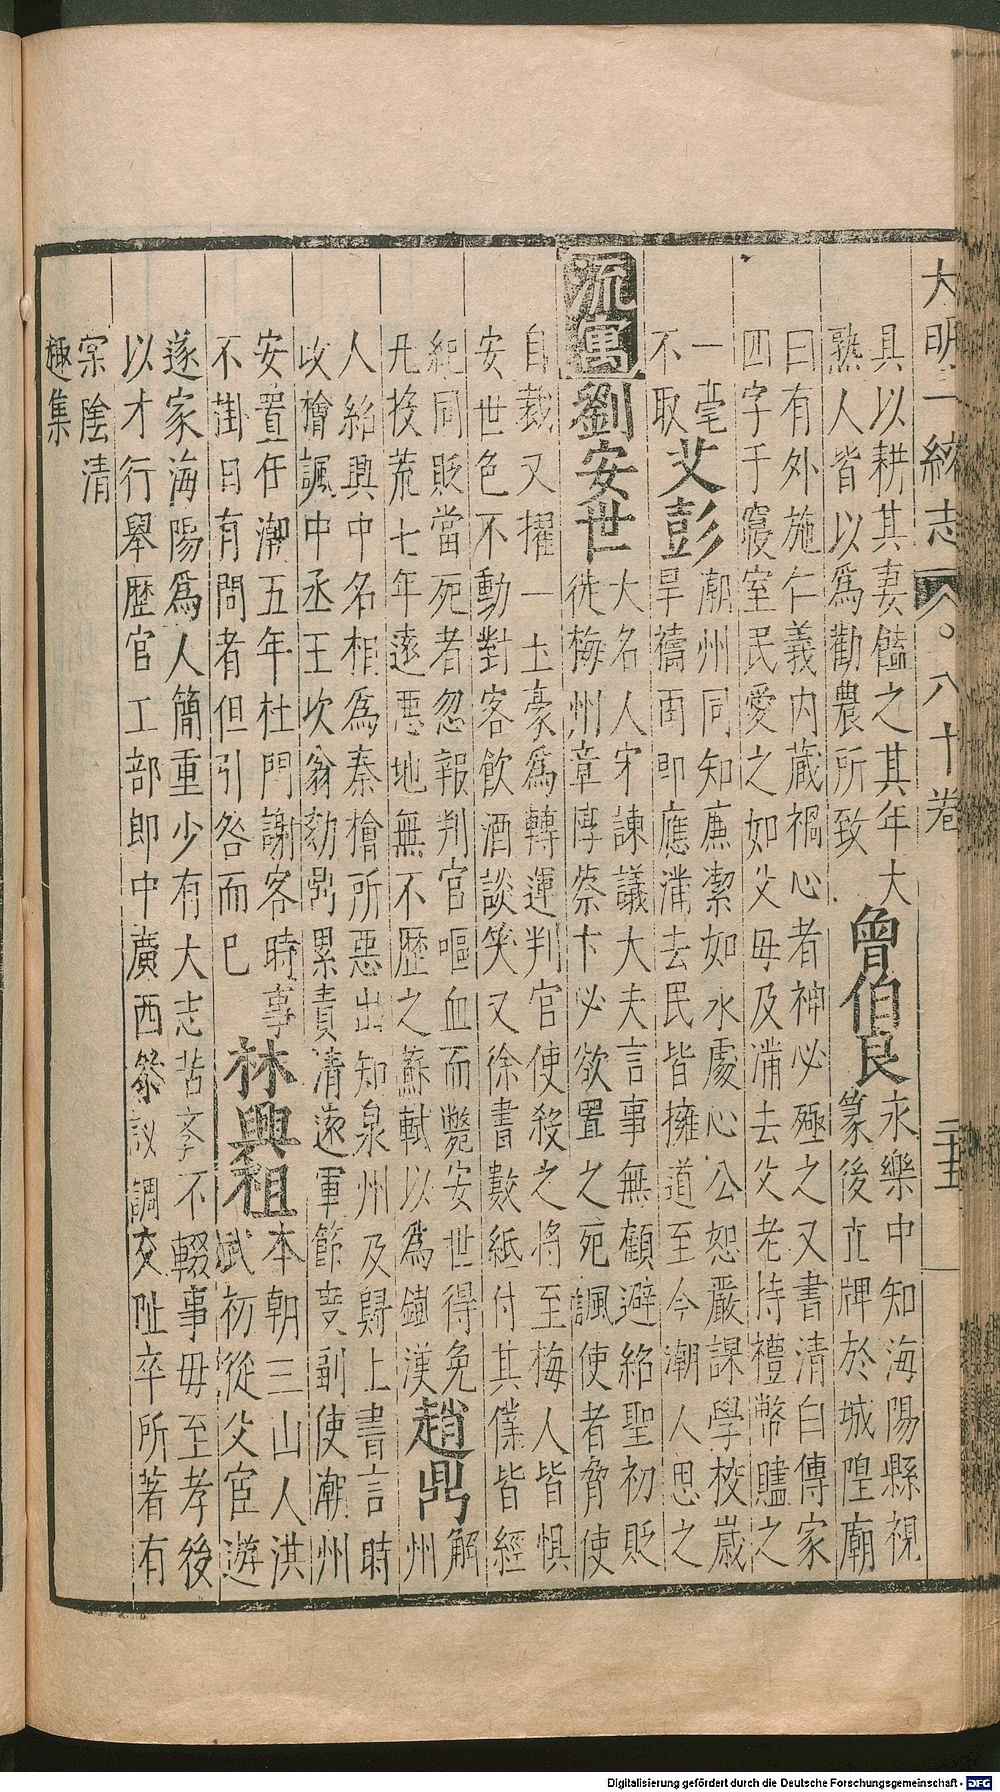 大明一統志 八十卷 二十五
具以耕其妻饁之其年大
熟人皆以爲勸農所致
曾伯良
永樂中知海陽縣視
篆後立牌於城隍廟
曰有外施仁義内蔵禍心者神必殛之又書清白傳家
四字于寝室民愛之如父母及滿去父老持禮幣贐之
一毫
不取
艾彭
潮州同知亷潔如水處心公恕嚴課學校嵗
旱禱雨即應滿去民皆擁道至今潮人思之
流寓
劉安世
大名人宋諫議大夫言事無顧避紹聖初貶
徙梅州章惇蔡卞必欲置之死諷使者脅使
自裁又擢一土豪爲轉運判官使殺之將至梅人皆惧
安世色不動對客飲酒談笑又徐書數紙付其僕皆經
紀同貶當死者忽報判官嘔血而斃安世得免
凡投荒七年遠惡地無不歴之蘇軾以爲鐵漢
趙鼎
解
州
人紹興中名相爲秦檜所惡出知泉州及歸上書言時
政檜諷中丞王次翁劾鼎累責清遠軍節度副使潮州
安置在潮五年杜門謝客時事
不掛日有問者但引咎而已
林興祖
本朝三山人洪
武初從父宦遊
遂家海陽爲人簡重少有大志苦學不輟事母至孝後
以才行舉歴官工部郎中廣西叅議調交阯卒所著有
宲陰清
趣集
Digitalisierung gefördert durch die Deutsche Forschungsgemeinschaft - DFG